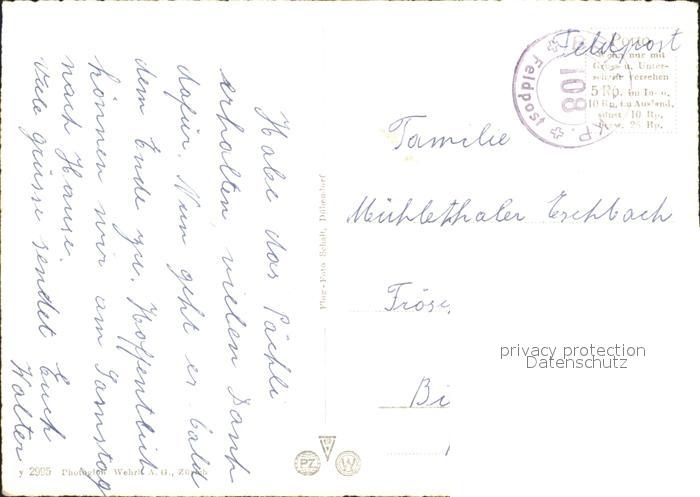 Habe das Päckli
erhalten, vielen Dank
dafür. Nun geht es bald
dem Ende zu. Hoffentlich
können wir am Samstag
nach Hause.
Viele grüsse sendet Euch
Walter
Feldpost
Porto
nur mit
Unter-
versehen
5 Rp. im Inn.,
10 Rp. i. Ausland,
sonst / 10 Rp.
25 Rp.
Feldpost
108
Familie
Mühlethaler Eschbach
Tröse
Bi
Flug-Foto Schait, Dübendorf
PZ
W
y 2995 Photoglob Wehrli A. G., Zürich
privacy protection
Datenschutz